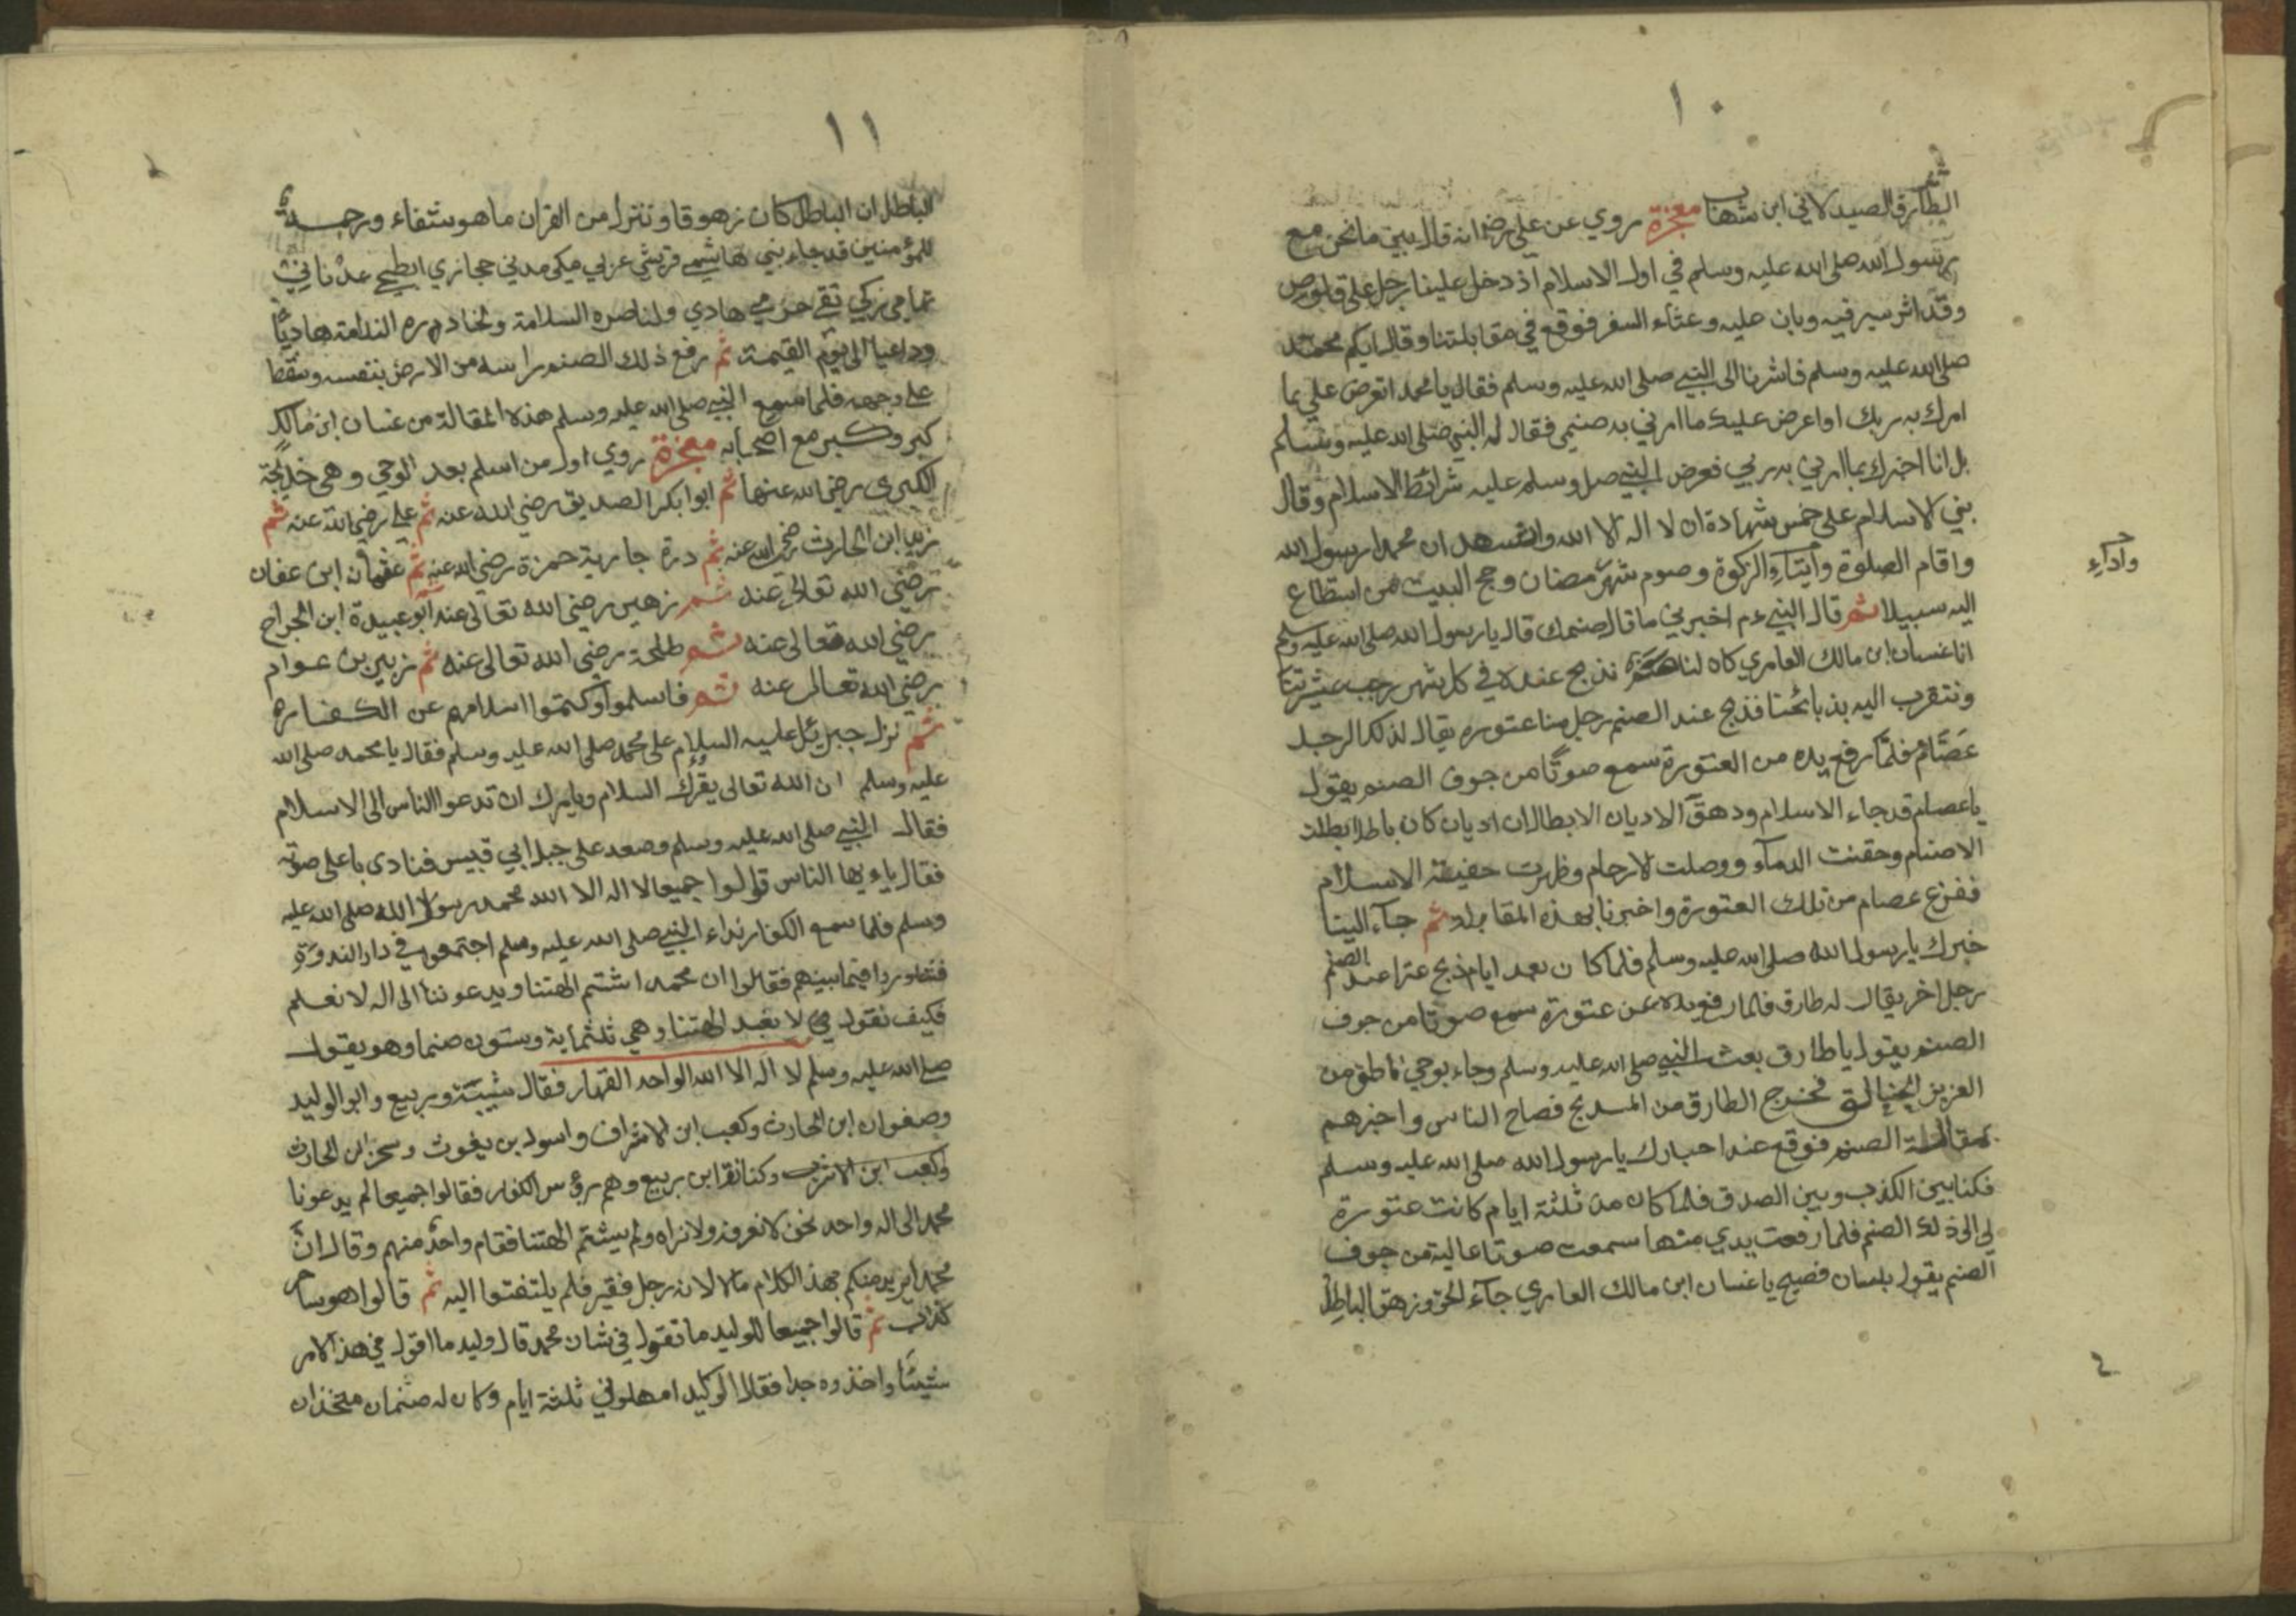 ١٠
الطارق الصيدلاني ابن شهاب معجزة روي عن علي رضي انه قال بين ما نحن مع
رسول الله صلى الله عليه وسلم في اول الاسلام اذ دخل علينا رجل على قلوص
وقد اثر سير فيه وبان عليه وعثاء السفر فوقع في مقابلتنا وقال ايكم محمد
صلى الله عليه وسلم فاشرنا الى النبي صلى الله عليه وسلم فقال يا محمد اتعرض علي بما
امرك به ربك او اعرض عليك ما امرني به صنمي فقال له النبي صلى الله عليه وسلم
بل انا اخبرك بما امرني به ربي فعرض النبي صل وسلم عليه شرائط الاسلام وقال
بني الاسلام على خمس شهادة ان لا اله الا الله واشهد ان محمدا رسول الله
واقام الصلوة وايتاء الزكوة وصوم شهر رمضان وحج البيت من استطاع
وآداء
اليه سبيلا ثم قال النبي ءم اخبرني ما قال صنمك قال يا رسول الله صلى الله عليه وسلم
انا غسان ابن مالك العامري كان لنا نذبح عنده في كل شهر رجب عتيرتنا
ونتقرب اليه بذبائحنا فذبح عند الصنم رجل منا عتوره يقال لذلك الرجل
عصام فلما رفع يده من العتورة سمع صوتا من جوف الصنم يقول
يا عصام قد جاء الاسلام ودهق الاديان الابطال ان اديان كان باطلا بطلت
الاصنام وحقنت الدماء ووصلت الارحام وظهرت حفيقة الاسلام
ففزع عصام من تلك العتورة واخبرنا بهذه المقابلة ثم جآء الينا
خبرك يا رسول الله صلى الله عليه وسلم فلما كان بعد ايام ذبح عترا عند الصنم
رجل اخر يقال له طارق فلما رفع يده عن عتورة سمع صوتا من جوف
الصنم يقول يا طارق بعث النبي صلى الله عليه وسلم وجاء بوحي ناطق من
العزيز الخالق فخرج الطارق من المذبح فصاح الناس واخبرهم
بمقالة الصنم فوقع عندا حبارك يا رسول الله صلى الله عليه وسلم
فكنا بين الكذب وبين الصدق فلما كان من ثلثة ايام كانت عتورة
لي الى ذلك الصنم فلما رفعت يدي منها سمعت صوتا عالية من جوف
الصنم يقول بلسان فصيح يا غسان ابن مالك العامري جآء الحق وزهق الباطل
١١
الباطل ان الباطل كان زهوقا وننزل من القران ما هو شفاء ورحمة
للمؤمنين قد جاء نبي هاشمي قرشي عربي مكي مدني حجازي ابطحي عدناني
تهامي زكي تقي حرمي هادي ولناصره السلامة ولخاذله الندامة هاديا
وداعيا الى يوم القيمة ثم رفع ذلك الصنم راسه من الارض بنفسه وسقط
على وجهه فلما سمع النبي صلى الله عليه وسلم هذه المقالة من غسان ابن مالك
كبر وكبر مع اصحابه معجزة روي اول من اسلم بعد الوحي وهي خديجة
الكبرى رضي الله عنها ثم ابوا بكر الصديق رضي الله عنه ثم علي رضي الله عنه ثم
زيد ابن الحارث رضي الله عنه ثم درة جارية حمزة رضي الله عنه ثم عثمان ابن عفان
رضي الله تعالى عنه ثم زهير رضي الله تعالى عنه ابو عبيدة ابن الجراح
رضي الله تعالى عنه ثم طلحة رضي الله تعالى عنه ثم زبير بن عوام
رضي الله تعالى عنه ثم فاسلموا وكتموا اسلامهم عن الكفاره
ثم نزل جبريئل عليه السلام على محمد صلى الله عليه وسلم فقال يا محمد صلى الله
عليه وسلم ان الله تعالى يقرئك السلام ويامرك ان تدعوا الناس الى الاسلام
فقال النبي صلى الله عليه وسلم وصعد على جبل ابي قبيس فنادى باعلى صوته
فقال ياءيها الناس قولوا جميعا لا اله الا الله محمد رسول الله صلى الله عليه
وسلم فلما سمع الكفار نداء النبي صلى الله عليه وسلم اجتمعوا في دار الندوة
فتشاوروا فيما بينهم فقالوا ان محمدا شتم الهتنا ويدعوننا الى اله لا نعلم
فكيف نقول في لا نعبد الهتنا وهي ثلثماية وستون صنما وهو يقول
صلى الله عليه وسلم لا اله الا الله الواحد القهار فقال شيبة وربيع وابو الوليد
وصفوان ابن الحارث وكعب ابن الاشراف واسود بن يغوث وسخر ابن الحارث
وكعب ابن الاشرب وكنانة ابن ربيع وهم رؤس الكفار فقالوا جميعا لم يدعونا
محمد الى اله واحد نحن لا نعرفه ولا نراه ولم يشتم الهتنا فقام واحد منهم وقال ان
محمد ايريد منكم بهذا الكلام مالا لانه رجل فقير فلم يلتفتوا اليه ثم قالوا هو ساحر
كذاب ثم قالوا جميعا للوليد ما تقول في شان محمد قال وليد ما اقول في هذا الامر
شيئا واخذوه جدا فقال الوليد امهلوني ثلثة ايام وكان له صنمان متخذان